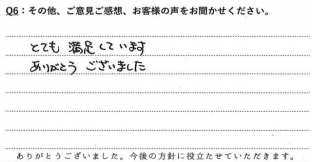 Q6：その他、ご意見ご感想、お客様の声をお聞かせください。
とても 満足しています
ありがとう ございました
ありがとうございました。今後の方針に役立たせていただきます。